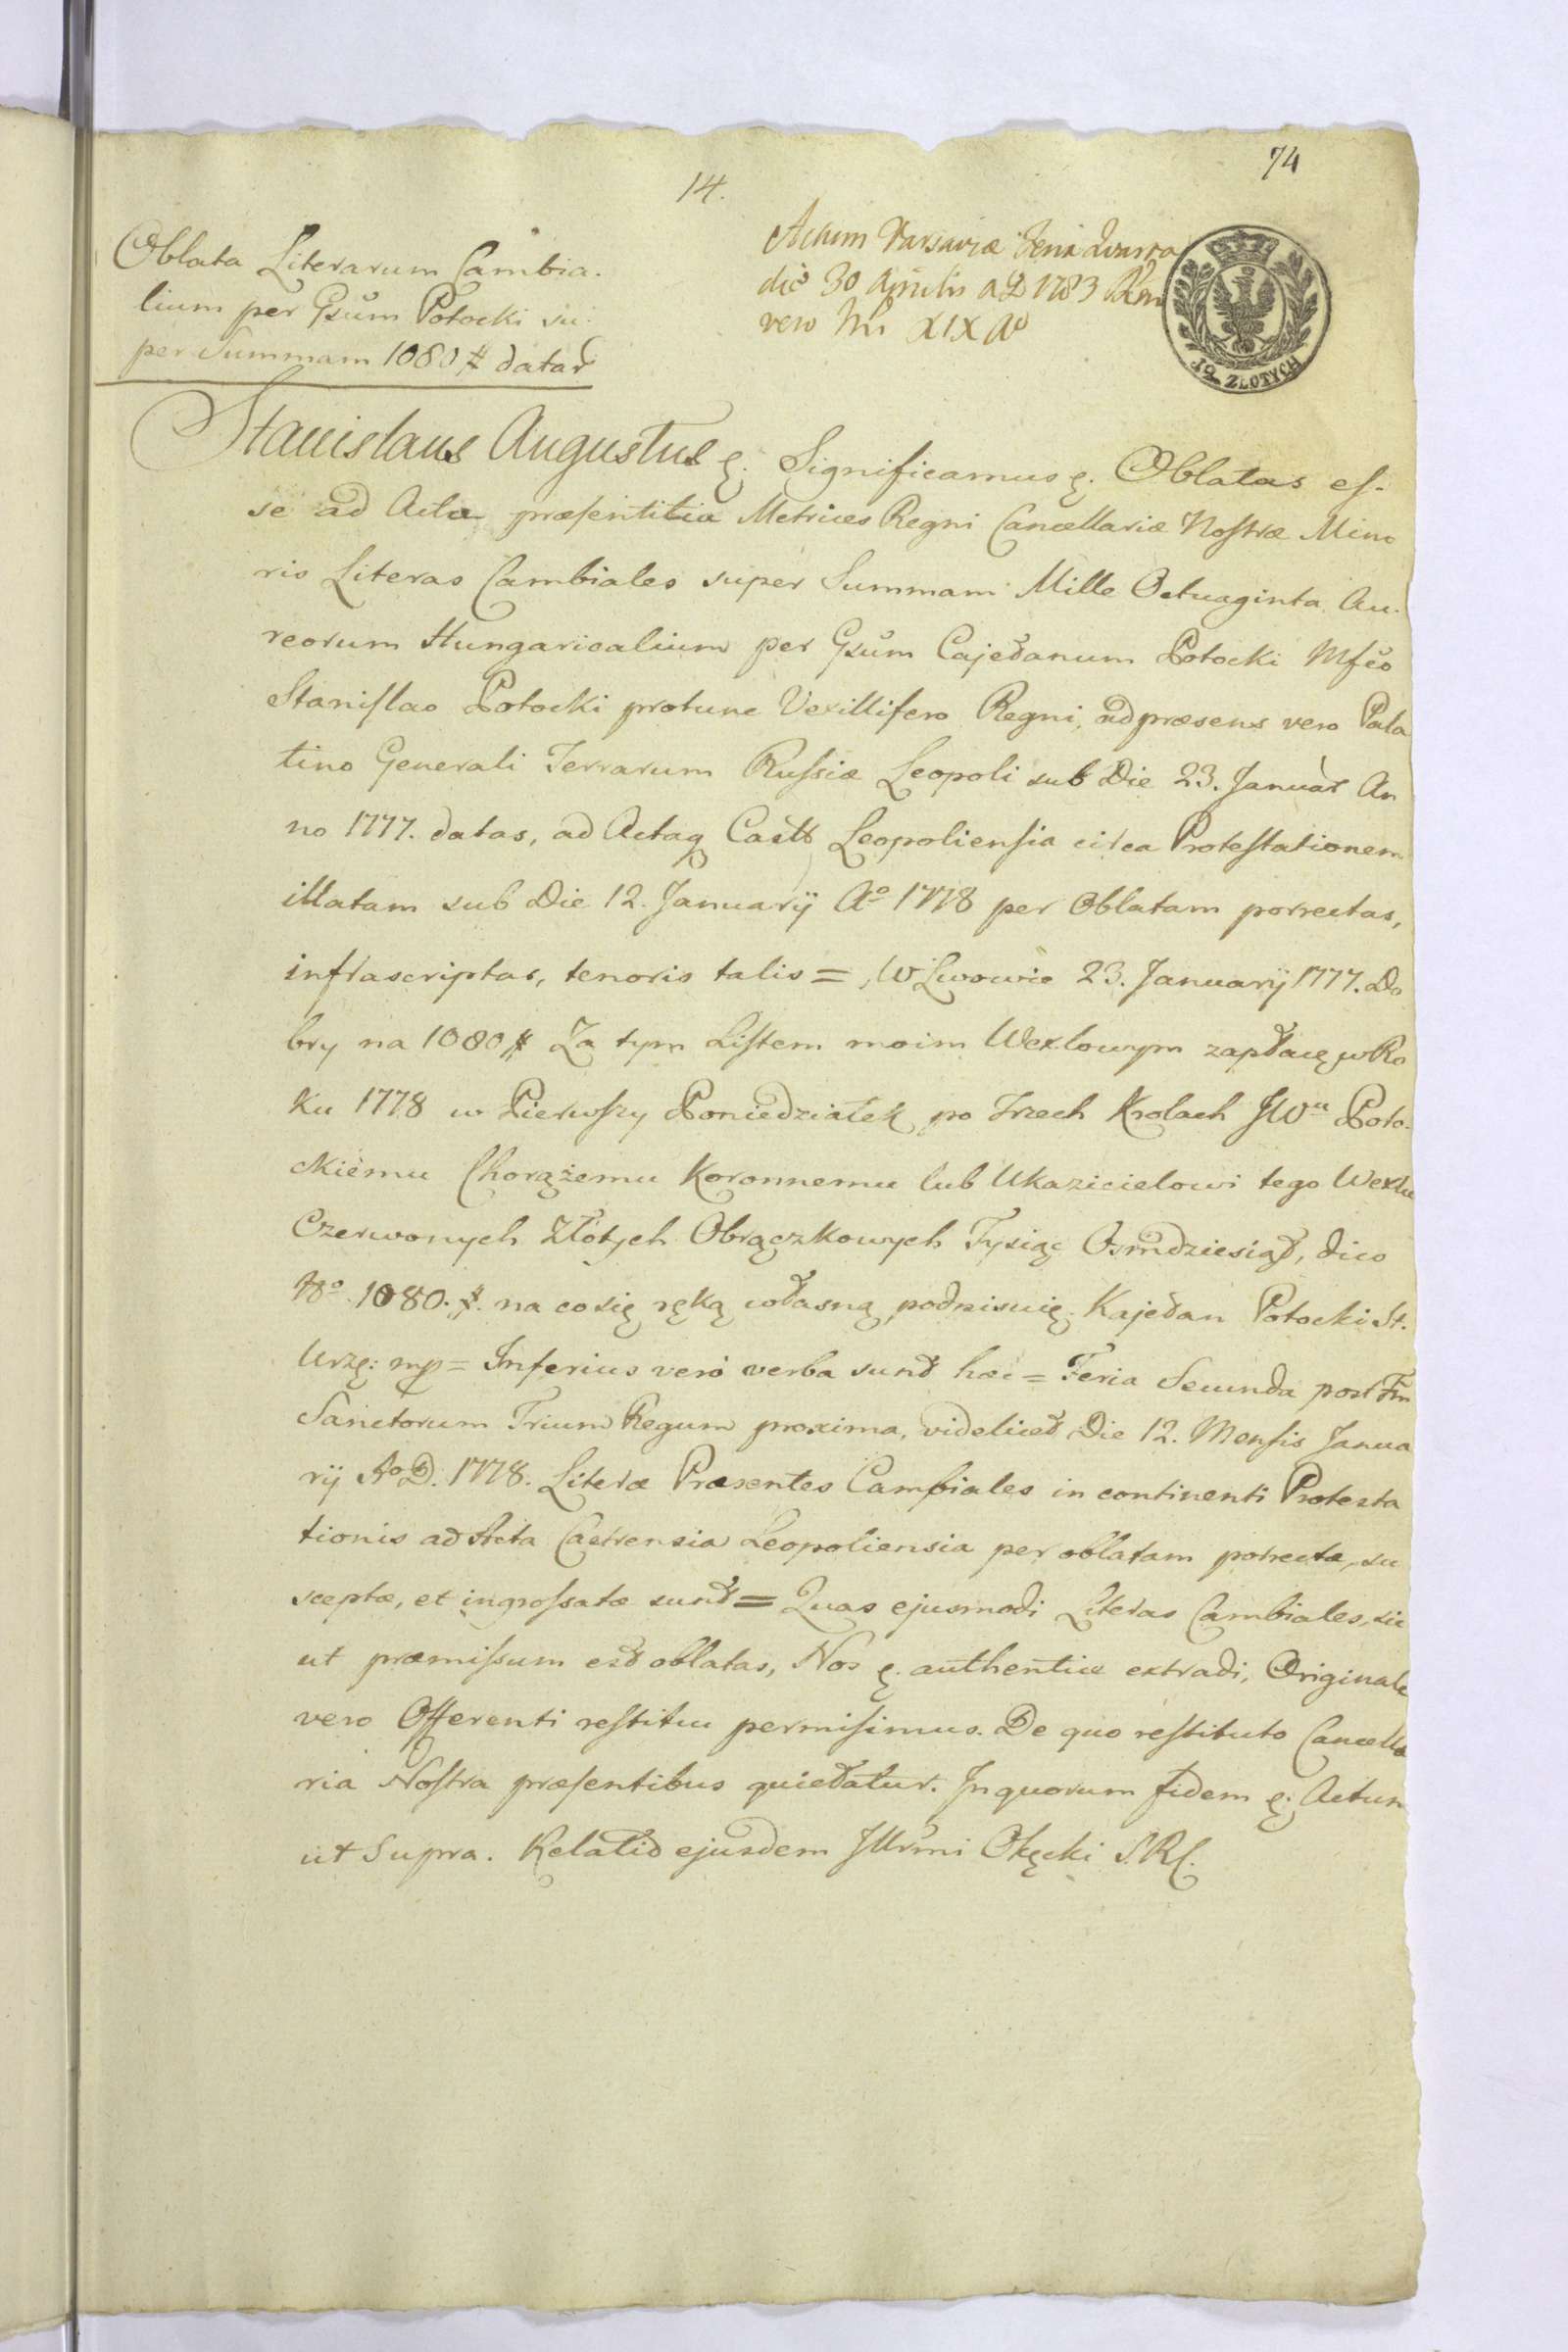 74
14.
Oblata Literarum Cambia.
lium per Gsum Potocki su:
per Summam 1080 # datar
Actum Varsaviæ Feria Quarta
die 30 Aprilis AD 1783
vero Nri XIX Ao
12 ZŁOTYCH
Stanislaus Augustus &. Significamus &. Oblatas es-
se ad Acta præsentitia Metrices Regni Cancellariæ Nostræ Mino
ris Literas Cambiales super Summam Mille Octuaginta Au.
reorum Hungaricalium per Gsum Cajetanum Potocki Mfco
Stanislao Potocki protunc Vexillifero Regni, ad præsens vero Pala
tino Generali Terrarum Russiæ Leopoli sub Die 23. Januar An
no 1777. datas, ad Actaq Castr Leopoliensia citca Protestationem
illatam sub Die 12. Januarij Ao 1778 per Oblatam porrectas,
infrascriptas, tenoris talis = W Lwowie 23. Januarij 1777. Do
bry na 1080 # Za tym Listem moim Wexlowym zapłacę w Ro
ku 1778 w Pierwszy Poniedziałek po Trzech Krolach JWu Poto-
ckiemu Chorążemu Koronnemu lub Ukazicielowi tego Wexlu
Czerwonych Złotych Obrączkowych Tysiąc Osmdziesiąt, dico
No 1080. #. na co się ręką własną podpisuię. Kajetan Potocki St.
Urzę: mp = Inferius vero verba sunt hæc = Feria Secunda post Fm
Sanctorum Trium Regum proxima, videlicet Die 12. Mensis Janua
rij Ao D. 1778. Literæ Præsentes Cambiales in continenti Protesta
tionis ad Acta Castrensia Leopoliensia per oblatam porrectæ, su
sceptæ, et ingrossatæ sunt = Quas ejusmodi Literas Cambiales, sic
ut præmissum est oblatas, Nos &. authentice extradi, Originale
vero Offerenti restitui permisimus. De quo restituto Cancella
ria Nostra præsentibus quietatur. In quorum fidem &: Actum
ut Supra. Relatio ejusdem Illrmi Okęcki S.R.C.